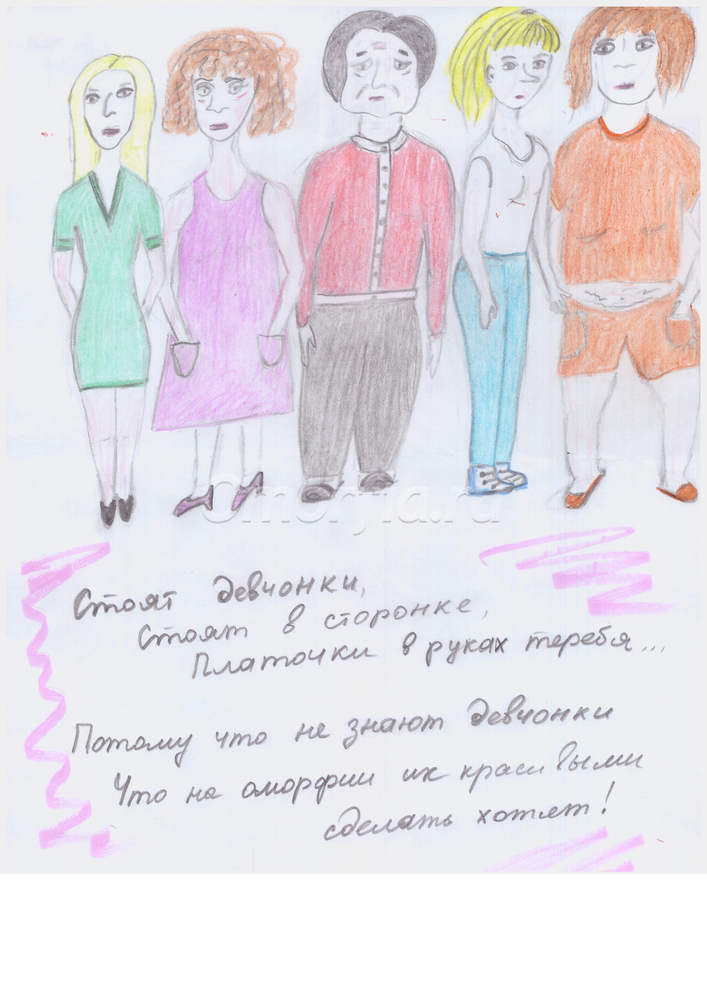 Omorfia.ru
Стоят девчонки,
Стоят в сторонке,
Платочки в руках теребя...
Потому что не знают девчонки
Что на оморфии их красивыми
сделать хотят!